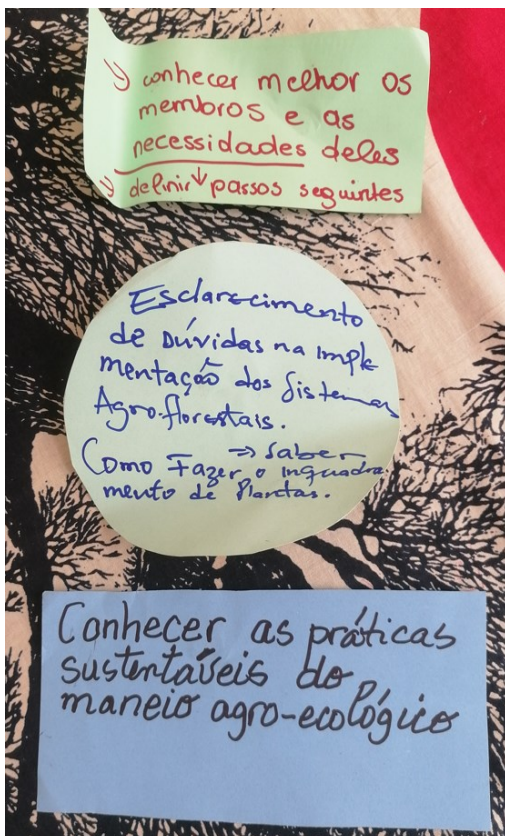 conhecer melhor os
membros e as
necessidades deles
definir passos seguintes
Esclarecimento
de Dúvidas na imple
mentação dos Sistemas
Agro-florestais.
⇒ Saber
Como Fazer o inquadra
mento de Plantas.
Conhecer as práticas
sustentáveis do
maneio agro-ecológico